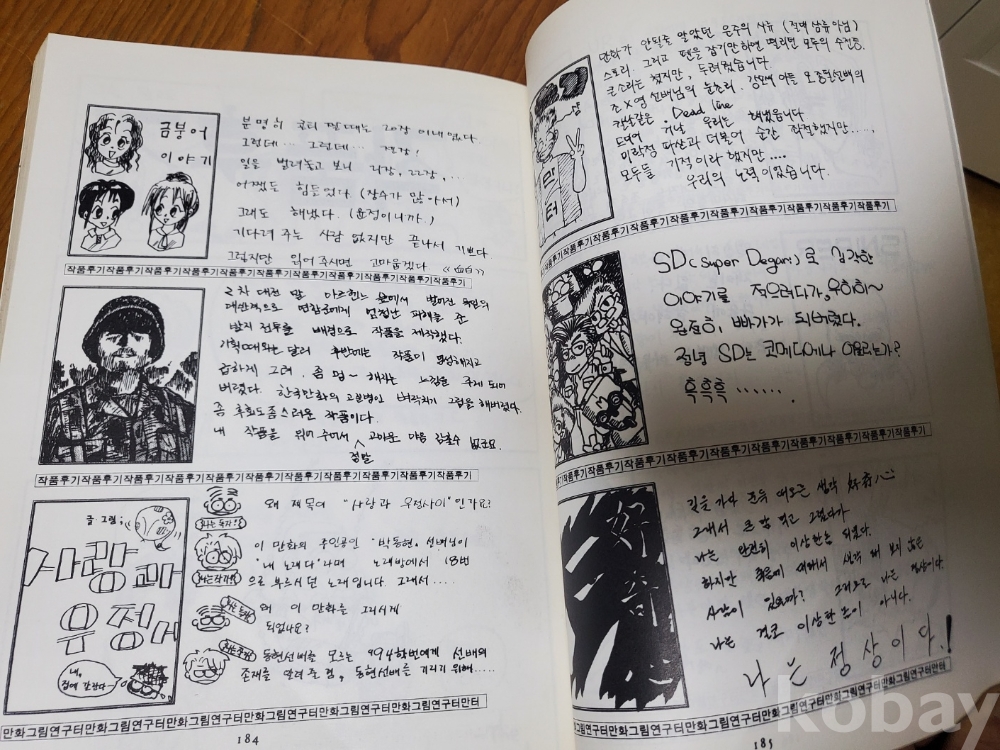 금붕어
이야기
분명히 콘티 짤때는 20장 이내였다.
그런데… 그런데…
일을 벌려놓고 보니 21장, 22장, …
어쨌든 힘들었다 (장수가 많아서)
그래도 해냈다. (윤정이니까.)
기다려 주는 사람 없지만 끝나서 기쁘다.
그렇지만 읽어 주시면 고마웁겠다
작품후기작품후기작품후기작품후기작품후기작품후기작품후기작품후기작품후기
2차 대전 말 아르헨느 숲에서 벌어진 독일의
대반격으로 연합군에게 엄청난 피해를 준
발지 전투를 배경으로 작품을 제작했다.
기획때와는 달리 후반에는 작품이 엉성해지고
급하게 그려, 좀 멍~ 해지는 느낌을 주게 되어
버렸다. 한국만화의 고질병인 벼락치기 그림을 해버렸다.
좀 후회도 좀스러운 작품이다.
내 작품을 읽어 주어서 정말 고마운 마음 감출수 없군요.
작품후기작품후기작품후기작품후기작품후기작품후기작품후기작품후기작품후기
글 그림;
사랑과
우정사이
네,
집에 간다~
왜 제목이 "사랑과 우정사이"인가요?
나는 독자!
이 만화의 주인공인 "박동현" 선배님이
"내 노래다"라며 노래방에서 18번
으로 부르시던 노래입니다. 그래서…
나는 작가!
왜 이 만화를 그리시게
되었나요?
나는 독자
동현선배를 모르는 99학번에게 선배의
존재를 알려 주고, 동현선배를 기리기 위해……
만화그림연구터만화그림연구터만화그림연구터만화그림연구터만화그림연구터만터
184
만화가 안될줄 알았던 은주의 사유 (절대 남류 아님)
스토리. 그리고 펜을 잡기만하면 떨리던 모두의 수전증.
큰소리는 쳤지만, 두려웠습니다.
조X영 선배님의 눈초리.
Dead line
드디어 우리는 해냈습니다
순간 착각했지만…,
모두들 기적이라 했지만….
우리의 노력이었습니다.
터
작품후기작품후기작품후기작품후기작품후기작품후기작품후기작품후기
SD(Super Degari)로 심각한
이야기를 적으려다가, 우히히~
완전히, 빠가가 되버렸다.
정녕 SD는 코메디에나 어울리는가?
흑흑흑……
작품후기작품후기작품후기작품후기작품후기작품후기작품후기작품후기작품후기
好奇心
길을 가다 문득 떠오른 생각 好奇心
그래서 큰 맘 먹고 그렸다가
나는 완전히 이상한놈 되었다.
하지만 죽음에 대해서 생각 해 보지 않은
사람이 있을까? 그러므로 나는 정상이다.
나는 결코 이상한 놈이 아니다.
나는 정상이다.!
화그림연구터만화그림연구터만화그림연구터만화그림연구터만터
185
kobay